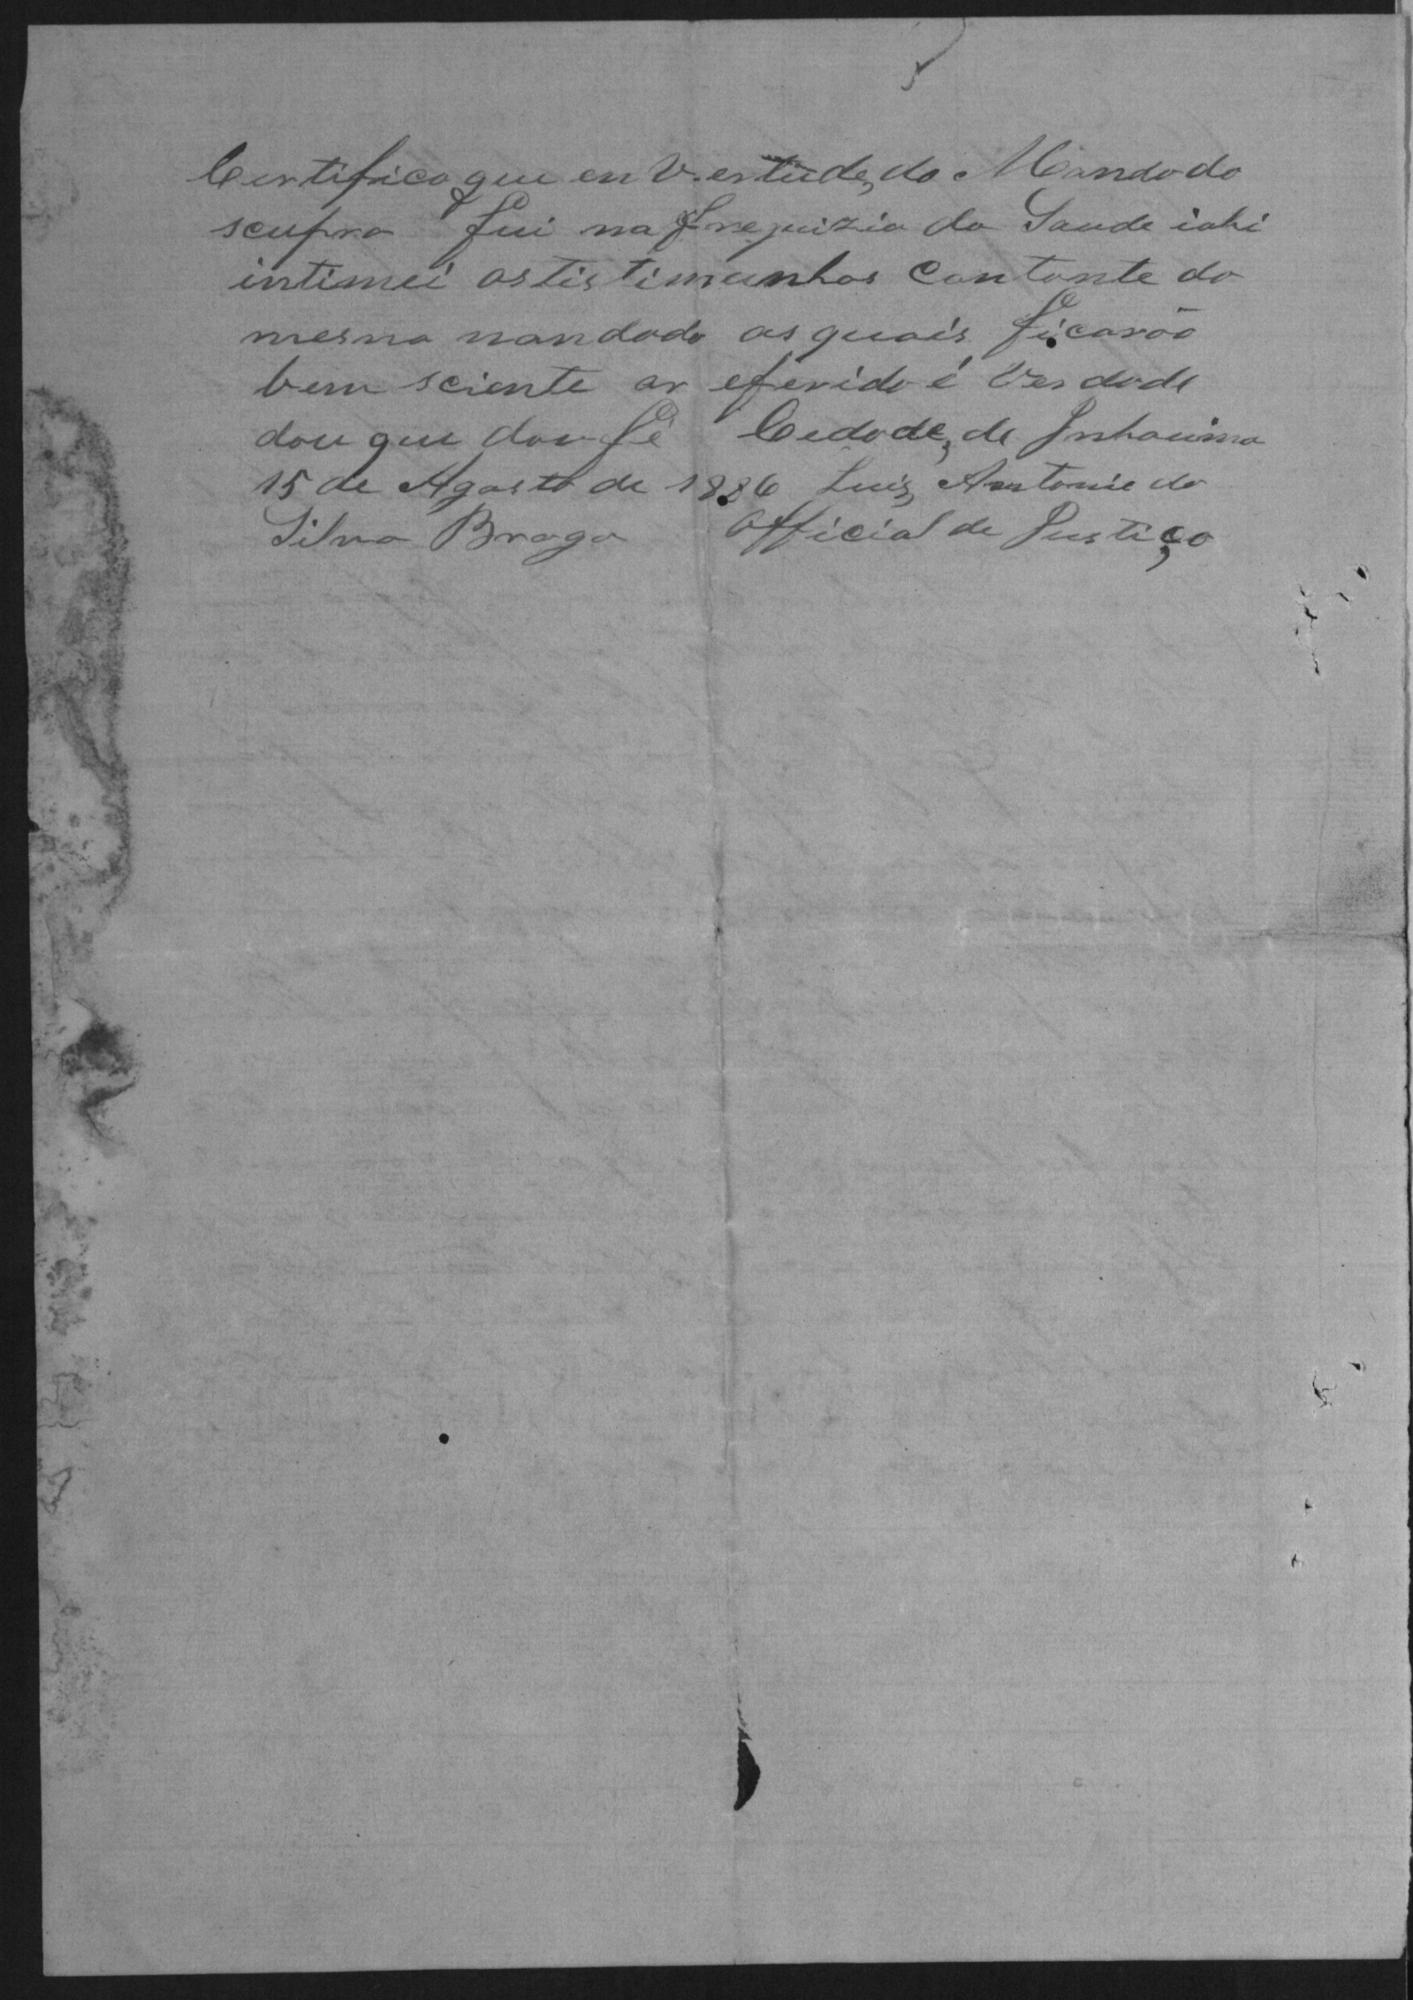 Certifico que en Vertude, do Mandado
scupra fui na freguizia da Saude iahi
intimei as tistimunhas Contante do
mesmo mandado as quais ficarão
bem sciente ar eferido é Verdade
dou que dou fé Cedade, de Inhauma
15 de Agosto de 1886 Luis Antonio da
Silva Braga Official de Justiça